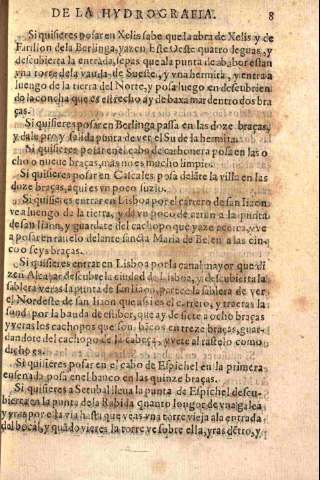 DE LA HYDROGRAFIA. 8
Si quisieres posar en Xelis sabe que la abra de Xelis y de
Farillon de la Berlinga, yazen Este Oeste quatro leguas, y
descubierta la entrada, sepas que ala punta de ababor estan
vna torre dela vanda de Sueste, y vna hermita, y entra a
luengo de la tierra del Norte, y posa luego en descubrien
do la concha que es estrecho ay de baxa mar dentro dos bra
ças.
Si quisieres posar en Berlinga passa en las doze braças,
y dale pro y salida punta de ver el Su de la hermita.
Si quisieres posar en el cabo de carbonera posa en las o
cho o nueue braças, mas no es mucho limpio.
Si quisieres posar en Cascales posa delãte la villa en las
doze braças, aqui es vn poco suzio.
Si quisieres entrar en Lisboa por el carrero de san Iiaon
ve a luengo de la tierra, y da vn poco de a la punta
de san Iiaon, y guardate del cachopo que yaze acerca, y ve
a posar en rastelo delante sancta Maria de Belen a las cin-
co o seys braças.
Si quisieres entrar en Lisboa por la canal mayor que di
zen Alcaçar descubre la ciudad de Lisboa, y descubierta la
sablera veras la punta de san Iiaon, parte o la sablera de ver
el Nordeste de san Iiaon que assi es el carrero, y traeras la
sonda por la banda de ember, que ay de siete a ocho braças
y veras los cachopos que son bacos en treze braças, guar-
dandote del cachopo de la cabeça, y vete al rastelo como
dicho es.
Si quisieres posar en el cabo de Espichel en la primera
ensenada posa en el banco en las quinze braças.
Si quisieres a Setubal lleua la punta de Espichel descu-
bierta en la punta de la Rabida quanto longor de vna galea
y yras por esta via hasta que veas vna torre vieja ala entrada
del bocal, y quãdo vieres la torre ve sobre ella, yras dẽtro, y